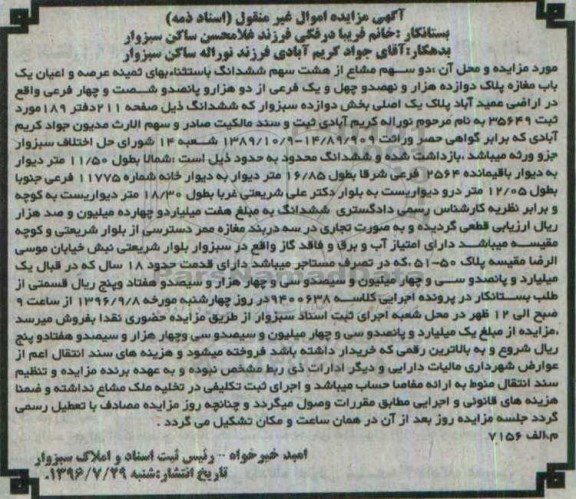 آگهی مزایده اموال غیر منقول (اسناد ذمه)
بستانکار :خانم فریبا درفکی فرزند غلامحسن ساکن سبزوار
بدهکار:آقای جواد کریم آبادی فرزند نوراله ساکن سبزوار
مورد مزایده و محل آن :دو سهم مشاع از هشت سهم ششدانگ باستثناءبهای ثمینه عرصه و اعیان یک
باب مغازه پلاک دوازده هزار و نهصدو چهل و یک فرعی از دو هزارو پانصدو شصت و چهار فرعی واقع
در اراضی عمید آباد پلاک یک اصلی بخش دوازده سبزوار که ششدانگ ذیل صفحه ۲۱۱دفتر ۱۸۹مورد
ثبت ۳۵۶۴۹ به نام مرحوم نوراله کریم آبادی ثبت و سند مالکیت صادر و سهم الارث مدیون جواد کریم
آبادی که برابر گواهی حصر وراثت ۱۴/۸۹/۹۰۹-۱۳۸۹/۱۰/۹ شعبه ۱۴ شورای حل اختلاف سبزوار
جزو ورثه میباشد .بازداشت شده و ششدانگ محدود به حدود ذیل است :شمالا بطول ۱۱/۵۰ متر دیوار
به دیوار باقیمانده ۲۵۶۴ فرعی شرقا بطول ۱۶/۸۵ متر دیوار به دیوار خانه شماره ۱۱۷۷۵ فرعی جنوبا
بطول ۱۲/۰۵ متر درو دیواریست به بلوار دکتر علی شریعتی غربا بطول ۱۸/۳۰ متر دیواریست به کوچه
و برابر نظریه کارشناس رسمی دادگستری ششدانگ به مبلغ هفت میلیاردو چهارده میلیون و صد هزار
ریال ارزیابی قطعی گردیده و به صورت تجاری در سه دربند مغازه ممر دسترسی از بلوار شریعتی و کوچه
مقیسه میباشد دارای امتیاز آب و برق و فاقد گاز واقع در سبزوار بلوار شریعتی نبش خیابان موسی
الرضا مقیسه پلاک ۵۰-۵۱ ،که در تصرف مستاجر میباشد دارای قدمت حدود ۱۸ سال که در قبال یک
میلیارد و پانصدو سی و چهار میلیون و سیصدو سی و چهار هزار و سیصدو هفتادو پنج ریال قسمتی از
طلب بستانکار در پرونده اجرایی کلاسه ۹۴۰۰۶۳۸در روز چهارشنبه مورخه ۱۳۹۶/۹/۸ از ساعت ۹
صبح الی ۱۲ ظهر در محل شعبه اجرای ثبت اسناد سبزوار از طریق مزایده حضوری نقدا بفروش میرسد
.مزایده از مبلغ یک میلیارد و پانصدو سی و چهار میلیون و سیصدو سی وچهار هزار و سیصدو هفتادو پنج
ریال شروع و به بالاترین رقمی که خریدار داشته باشد فروخته میشود و هزینه های سند انتقال اعم از
عوارض شهرداری مالیات دارایی و دیگر ادارات ذی ربط مشخص نبوده و به عهده برنده مزایده و تنظیم
سند انتقال منوط به ارائه مفاصا حساب میباشد و اجرای ثبت تکلیفی در تخلیه ملک مشاع نداشته و ضمنا
هزینه های قانونی و اجرایی مطابق مقررات وصول میگردد و چنانچه روز مزایده مصادف با تعطیل رسمی
گردد جلسه مزایده روز بعد از آن در همان ساعت و مکان تشکیل می گردد .
م.الف ۷۱۵۶
امید خیرخواه -- رئیس ثبت اسناد و املاک سبزوار
تاریخ انتشار:شنبه ۱۳۹۶/۷/۲۹